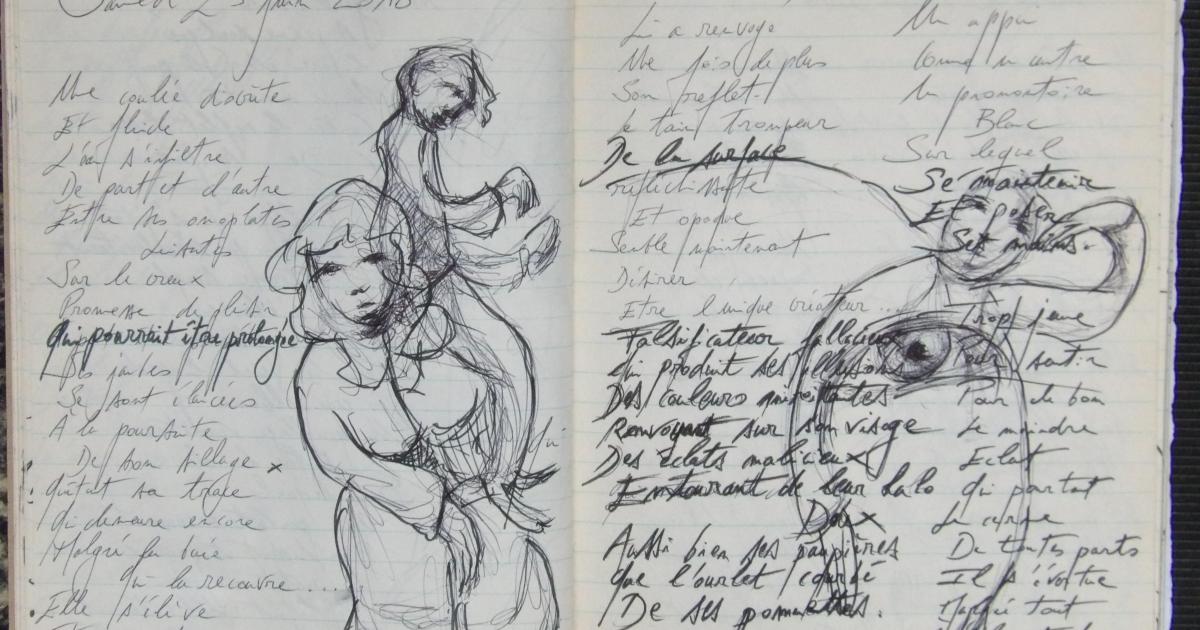 Samedi 23 Juin 2018
Une coulée d'azote
Et fluide
L'eau s'infiltre
De part et d'autre
Entre ses omoplates
Luisantes
Sur le creux
Promesse de plaisir
Qui pourrait être prolongée
Ses jambes
Se sont élancées
A la poursuite
De son sillage x
Qu'était sa trace
Qui demeure encore
Malgré la buée
qui la recouvre ....
Elle s'élève
Lui a renvoyé
Une fois de plus
Son reflet
Le tain trompeur
De la surface
réfléchissante
Et opaque
Semble maintenant
Désirer
Etre l'unique créateur ...
Falsificateur fallacieux
Qui produit ses illusions
Des couleurs miroitantes
Renvoyant sur son visage
Des éclats malicieux
Entourant de leur halo
Doux
Aussi bien ses paupières
Que l'ourlet courbé
De ses pommettes.
Un appui
Comme un autre
Un promontoire
Blanc
Sur lequel
Se maintenir
Et poser
Ses mains.
Trop jeune
Pour sentir
Pour de bon
Le moindre
Eclat
Qui partait
Le cerne
De toutes parts
Il s'évertue
Malgré tout